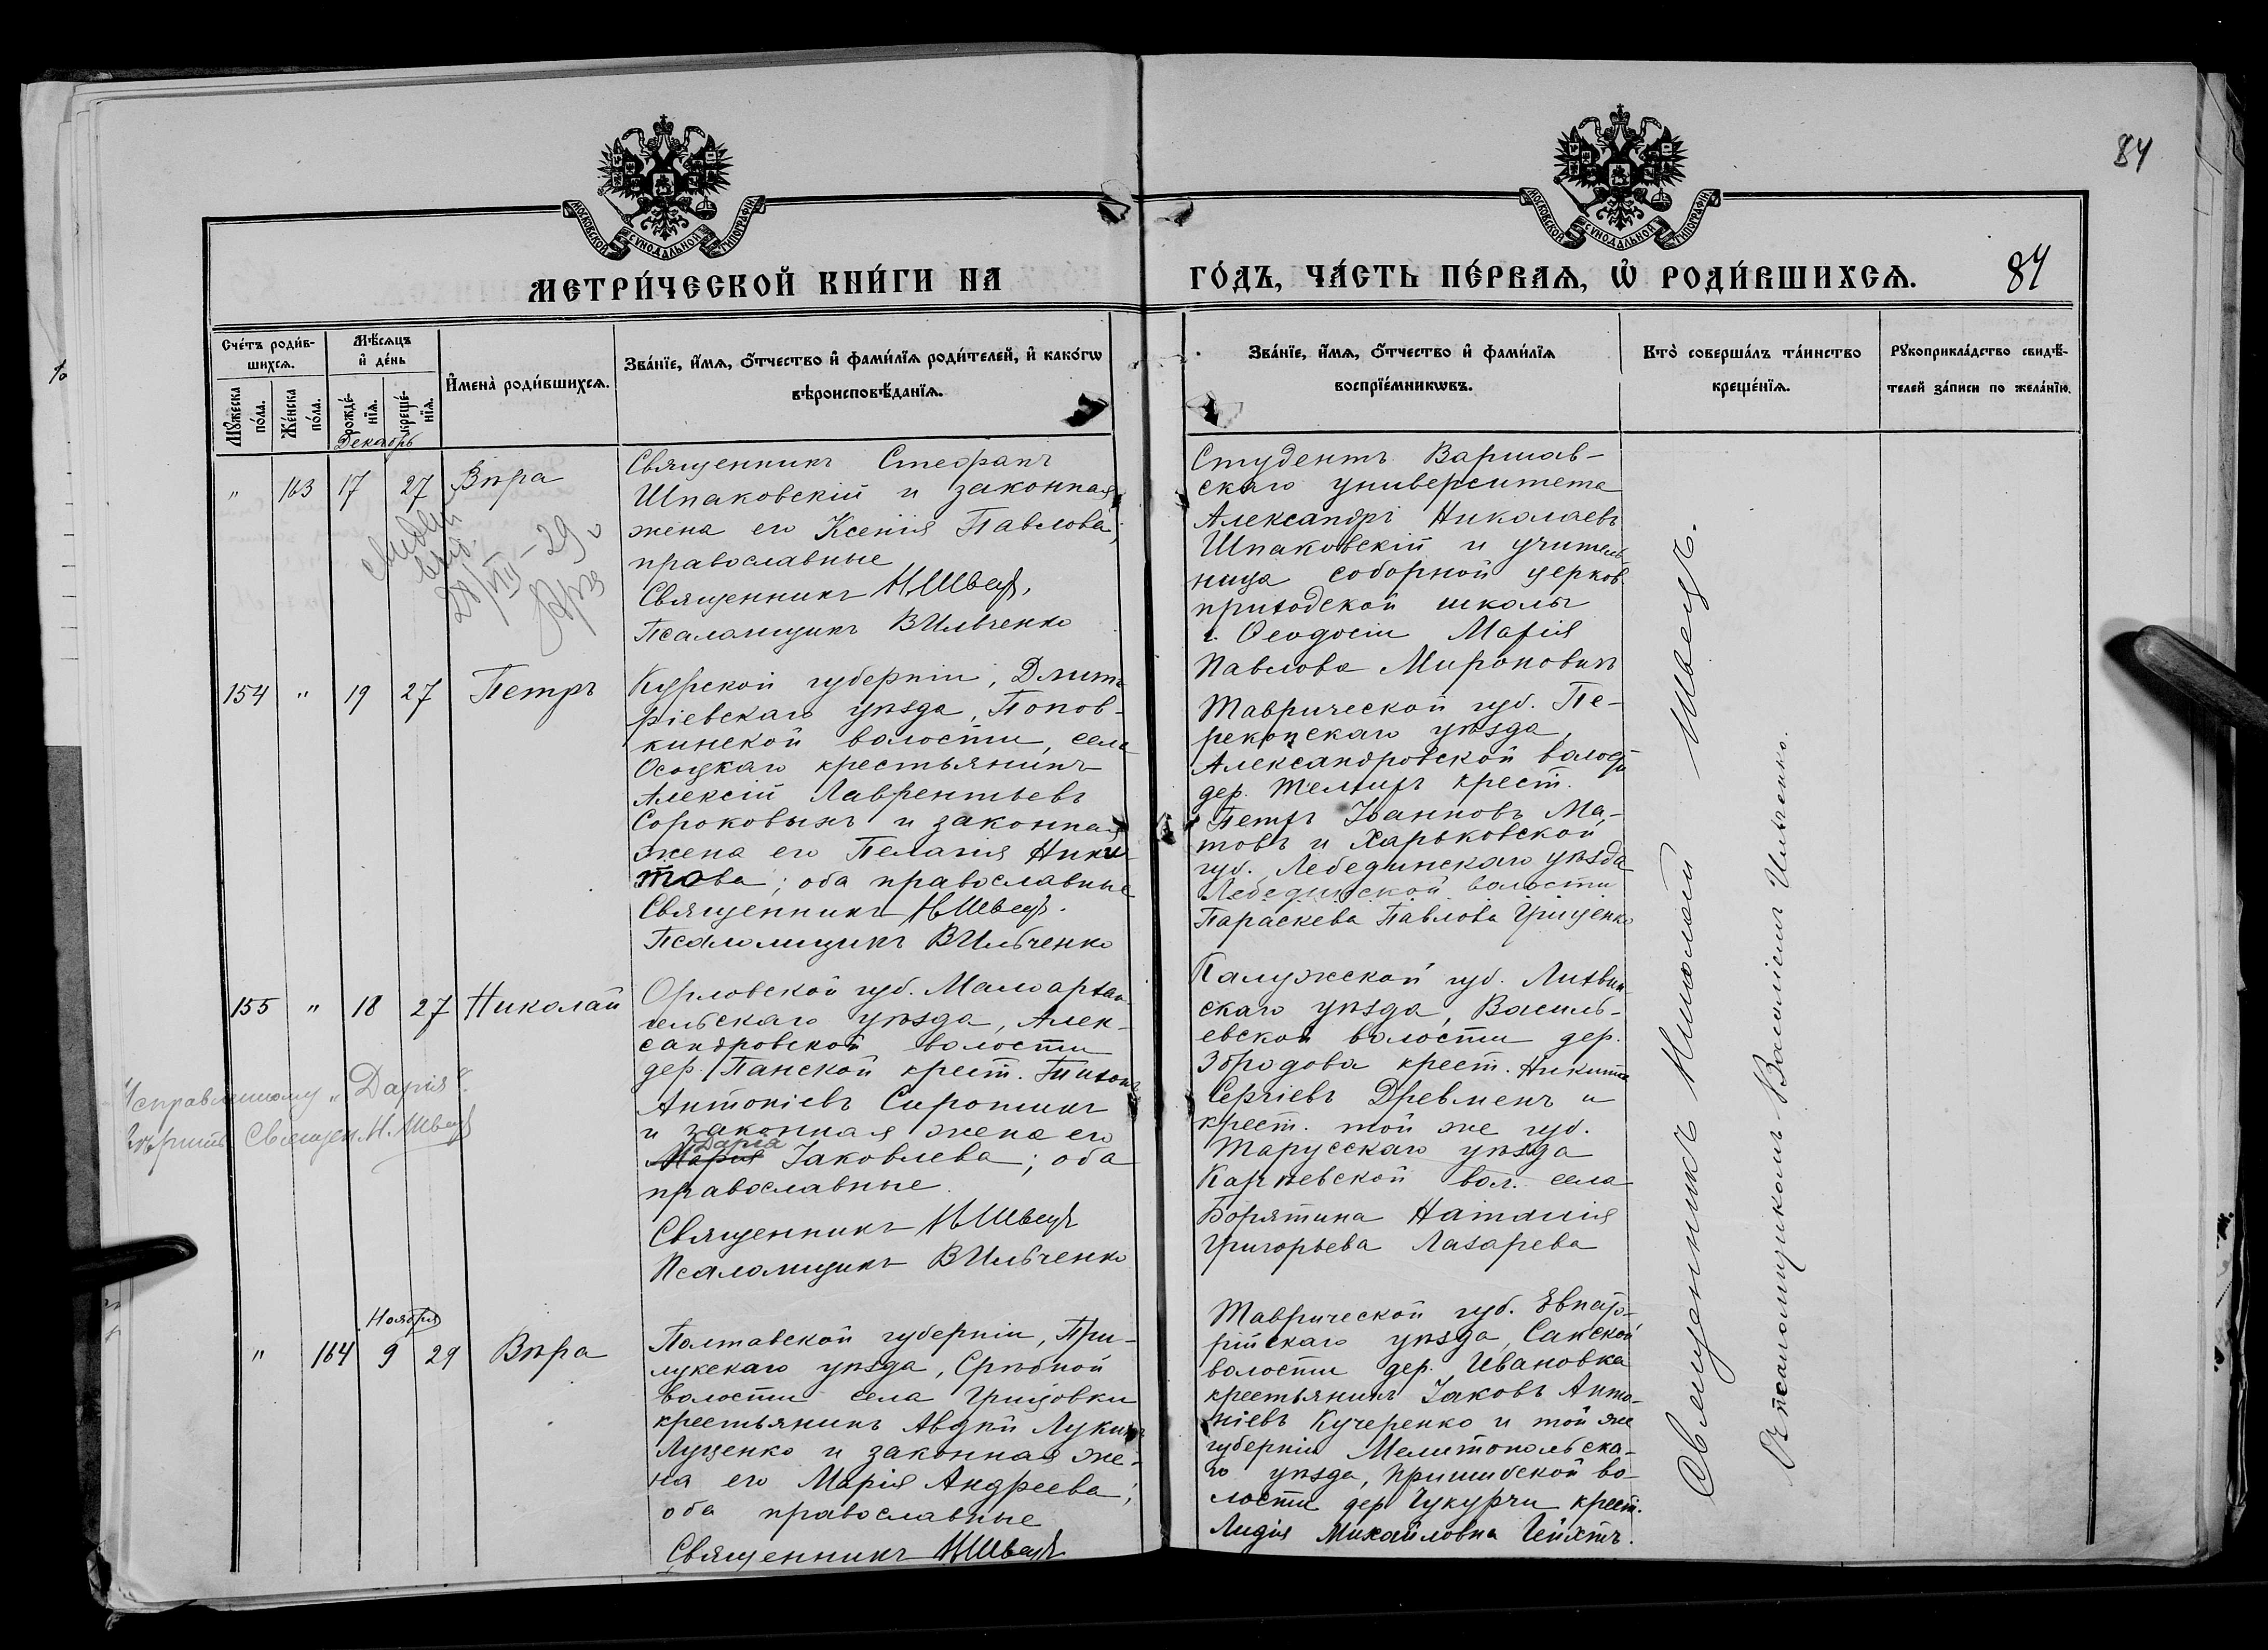 84
МОСКОВСКОЙ СѴНОДАЛЬНОЙ ТИПОГРАФІИ
МОСКОВСКОЙ СѴНОДАЛЬНОЙ ТИПОГРАФІИ
МЕТРИ́ЧЕСКОЙ КНИ́ГИ НА ГО́ДЪ, ЧА́СТЬ ПЕ́РВАѦ, Ѡ҆ РОДИ́ВШИХСѦ. 84
Сче́тъ роди́в-
шихсѧ.
Мꙋ́жеска по́ла.
Же́нска по́ла.
Мѣ́сѧцъ
и҆ де́нь
рожде́-
нїѧ.
креще́-
нїѧ.
И҆мена̀ роди́вшихсѧ.
Зва́нїе, и҆́мѧ, ѻ҆́тчество и҆ фами́лїѧ роди́телей, и҆ како́гѡ
вѣроисповѣ́данїѧ.
Зва́нїе, и҆́мѧ, ѻ҆́тчество и҆ фами́лїѧ
воспрїе́мникѡвъ.
Кто̀ соверша́лъ та́инство
креще́нїѧ.
Рꙋкоприкла́дство свидѣ́-
телей за́писи по жела́нїю.
Декабрь
" 163 17 27 Вѣра
28/VII - 29
Священникъ Стефанъ
Шпаковскій и законная
жена его Ксенія Павлова;
православные
Священникъ Н Швецъ.
Псаломщикъ В Ильченко
Студентъ Варшав-
скаго университета
Александръ Николаевъ
Шпаковскій и учитель
ница соборной церков.
приходской школы
г. Ѳеодосіи Марія
Павлова Мироновичъ
154 " 19 27 Петръ
Курской губерніи, Дмит-
ріевскаго уѣзда, Попов-
кинской волости, села
Осоцкаго крестьянинъ
Алексій Лаврентьевъ
Сороковыхъ и законная
жена его Пелагія Ники-
това; оба православные
Священникъ Н Швецъ.
Псаломщикъ В Ильченко
Таврической губ. Пе-
рекопскаго уѣзда,
Александровской волости
дер. крест.
Петръ Іоанновъ Ма-
товъ и Харьковской
губ. Лебединскаго уѣзда
Лебединской волости
Параскева Павлова Грищенко
155 " 18 27 Николай
Орловской губ. Малоархан-
гельскаго уѣзда, Алек-
сандровской волости
дер. Панской крест. Тихонъ
Антоніевъ Сиротинъ
и законная жена его
Дарія
Марія Іаковлева; оба
православные
Священникъ Н Швецъ
Псаломщикъ В Ильченко
Исправленному „Дарія“
вѣрить Священ. Н. Швецъ
Калужской губ. Лихвин-
скаго уѣзда, Василь-
евской волости дер.
Збродова крест. Никита
Сергіевъ Древменъ и
крест. той же губ.
Тарусскаго уѣзда
Карпевской вол. села
Борятина Наталія
Григорьева Лазарева
Ноября
" 164 9 29 Вѣра
Полтавской губерніи, При-
лукскаго уѣзда, Срѣбной
волости села Грицовки
крестьянинъ Авдій Лукинъ
Луценко и законная же-
на его Марія Андреева;
оба православные
Священникъ Н Швецъ
Таврической губ. Евпато-
рійскаго уѣзда, Сакской
волости дер. Ивановка
крестьянинъ Іаковъ Анто-
ніевъ Кучеренко и той же
губерніи Мелитопольска-
го уѣзда, Пришибской во-
лости дер Чукурчи крест.
Лидія Михайловна
Священникъ Николай Швецъ.
Съ псаломщикомъ Василіемъ Ильченко.